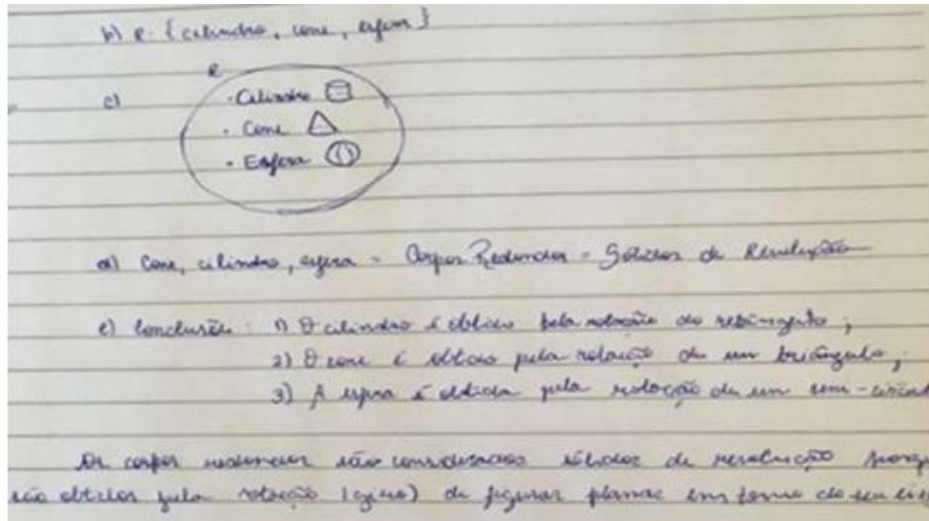 b) R = {cilindro, cone, esfera}
R
c) · Cilindro
· Cone
· Esfera
d) Cone, cilindro, esfera = Corpos Redondos = Sólidos de Revolução
e) Conclusão: 1) O cilindro é obtido pela rotação do retângulo;
2) O cone é obtido pela rotação de um triângulo;
3) A esfera é obtida pela rotação de um semi-círcul
Os corpos redondos são considerados sólidos de revolução porq
são obtidos pela rotação (giro) de figuras planas em torno do seu eix